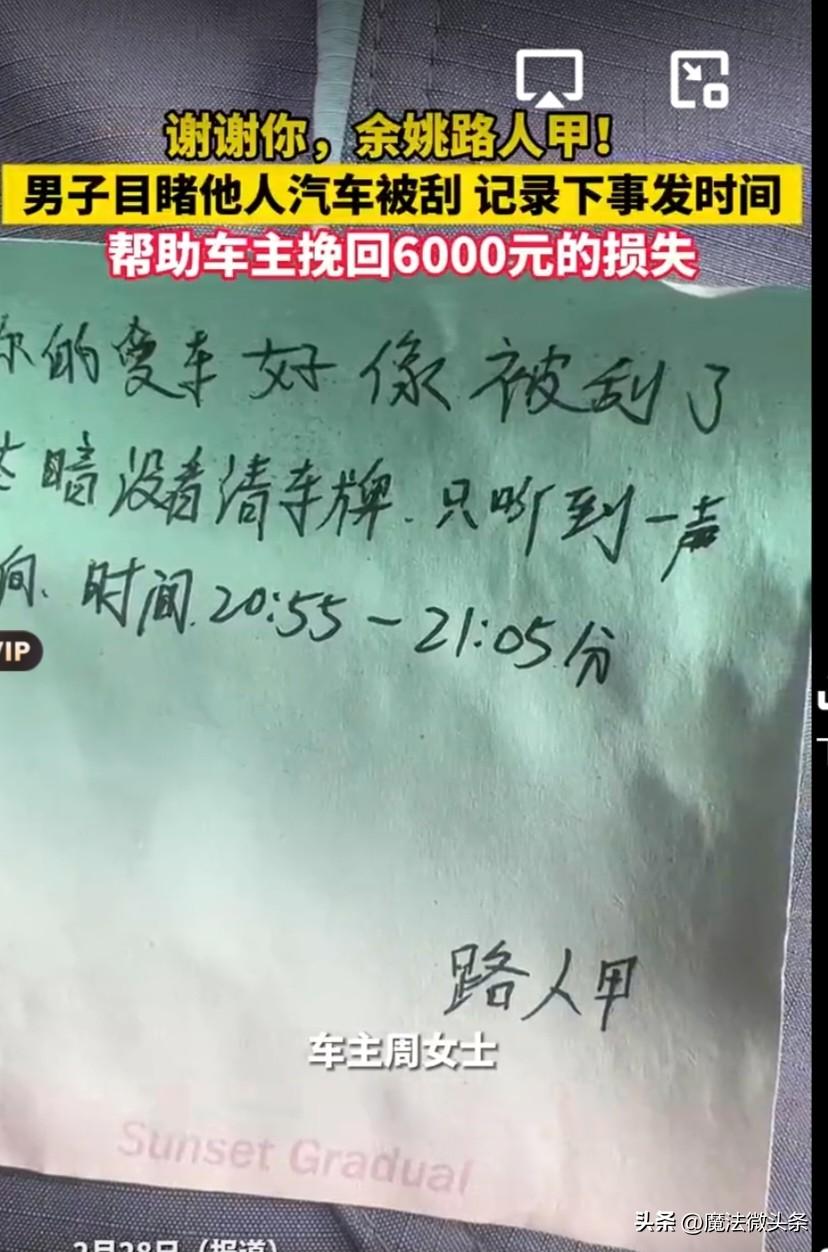 谢谢你，余姚路人甲！
男子目睹他人汽车被刮 记录下事发时间
帮助车主挽回6000元的损失
你的爱车好像被刮了
暗没看清车牌.只听到一声
响.时间.20:55-21:05分
VIP
路人甲
车主周女士
Sunset Gradual
2月28日（报道）
头条 @魔法微头条